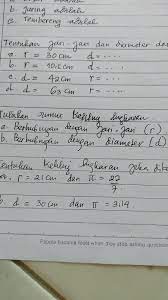 b. juring adalah
c. Tembereng adalah
Tentukan jari-jari dan diameter dari
a. r = 30 cm d = ....
b. r = 10,5 cm d = ....
c. d = 42 cm r = ....
d. d = 63 cm r = ....
rumus keliling lingkaran
a. Berhubungan dengan jari-jari (r)
b. Berhubungan dengan diameter (d)
Tentukan keliling lingkaran jika
r = 21 cm dan π = 22/7
b. d = 30 cm dan π = 3,14